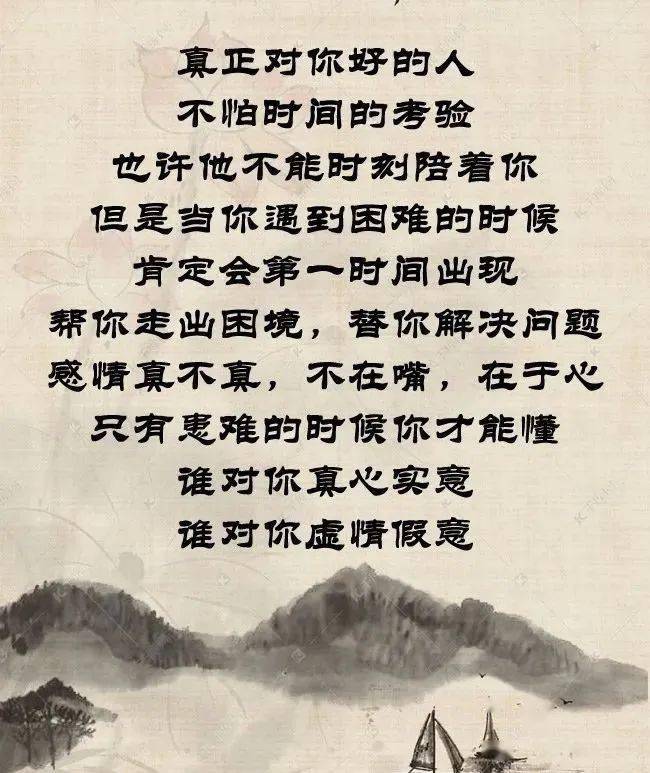 真正对你好的人
不怕时间的考验
也许他不能时刻陪着你
但是当你遇到困难的时候
肯定会第一时间出现
帮你走出困境，替你解决问题
感情真不真，不在嘴，在于心
只有患难的时候你才能懂
谁对你真心实意
谁对你虚情假意